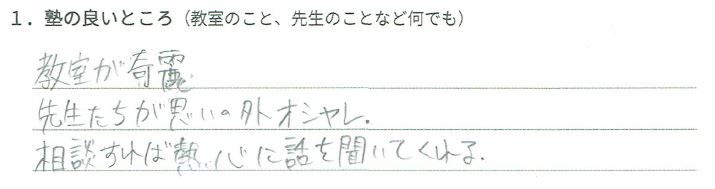 1. 塾の良いところ（教室のこと、先生のことなど何でも）
教室が奇麗
先生たちが思いの外オシャレ.
相談すれば熱心に話を聞いてくれる.